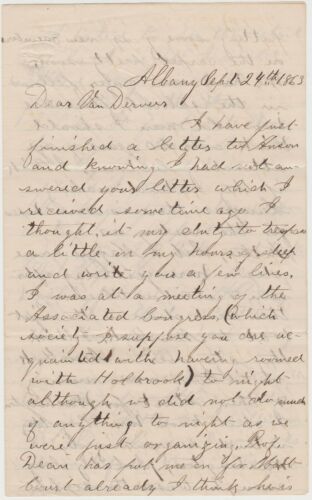 Albany Sept 24th 1863
Dear Van Derveer
I have just
finished a letter to Anson
and knowing I had not an-
swered your letter which I
received sometime ago I
thought it my duty to trespass
a little on my hours of sleep
and write you a few lines,
I was at a meeting of the
Associated Congress, (which
society I suppose you are ac-
quainted with having roomed
with Holbrook) to night
although we did not do much
of anything to night as we
were just organizing Prof.
Dean has put me in
Court already I think he is